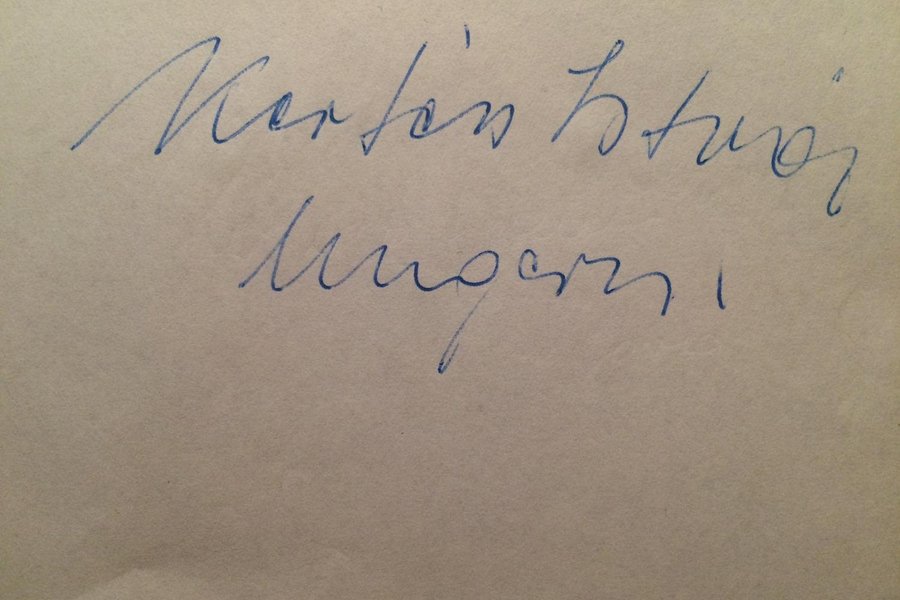 Kertész István
Ungarn.